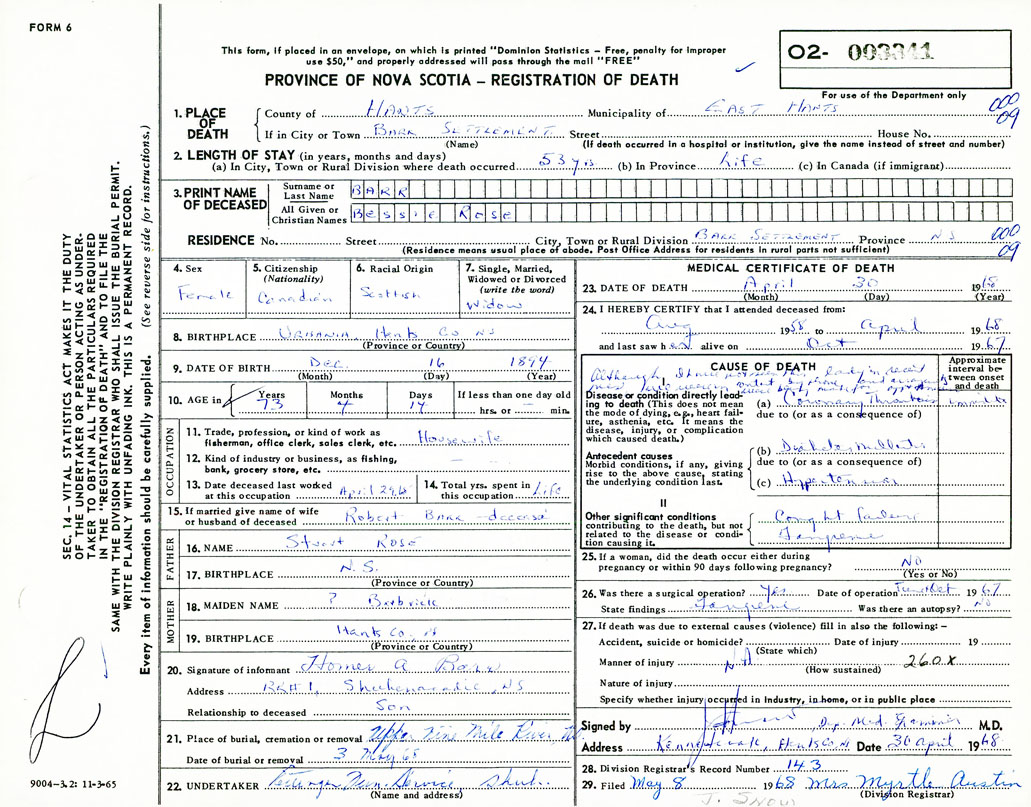 FORM 6
This form, if placed in an envelope, on which is printed "Dominion Statistics – Free, penalty for improper
use $50," and properly addressed will pass through the mail "FREE"
PROVINCE OF NOVA SCOTIA – REGISTRATION OF DEATH
02- 003341
For use of the Department only
000
09
1. PLACE OF DEATH
County of HANTS Municipality of EAST HANTS
If in City or Town BARR SETTLEMENT Street House No.
(Name) (If death occurred in a hospital or institution, give the name instead of street and number)
2. LENGTH OF STAY (in years, months and days)
(a) In City, Town or Rural Division where death occurred 53 yrs (b) In Province Life (c) In Canada (if immigrant)
3. PRINT NAME OF DECEASED
Surname or Last Name BARR
All Given or Christian Names Bessie Rose
RESIDENCE No. Street City, Town or Rural Division BARR SETTLEMENT Province NS 000
(Residence means usual place of abode. Post Office Address for residents in rural parts not sufficient) 09
4. Sex
Female
5. Citizenship
(Nationality)
Canadian
6. Racial Origin
Scottish
7. Single, Married, Widowed or Divorced
(write the word)
Widow
8. BIRTHPLACE URBANIA Hants Co NS
(Province or Country)
9. DATE OF BIRTH Dec. 16 1894
(Month) (Day) (Year)
10. AGE in Years Months Days If less than one day old
73 4 14 hrs. or min.
OCCUPATION
11. Trade, profession, or kind of work as
fisherman, office clerk, sales clerk, etc. Housewife
12. Kind of industry or business, as fishing,
bank, grocery store, etc.
13. Date deceased last worked
at this occupation April 29
14. Total yrs. spent in
this occupation Life
15. If married give name of wife
or husband of deceased Robert BARR – deceased
FATHER
16. NAME Stuart ROSE
17. BIRTHPLACE N.S.
(Province or Country)
MOTHER
18. MAIDEN NAME ? Barbrick
19. BIRTHPLACE Hants Co.
(Province or Country)
20. Signature of informant Homer A Barr
Address RR#1, Shubenacadie, NS
Relationship to deceased Son
21. Place of burial, cremation or removal Upper Nine Mile River,
Date of burial or removal 3 May 68
22. UNDERTAKER Service Shub.
(Name and address)
MEDICAL CERTIFICATE OF DEATH
23. DATE OF DEATH April 30 1968
(Month) (Day) (Year)
24. I HEREBY CERTIFY that I attended deceased from:
Aug 1958 to April 1968
and last saw her alive on Oct 1967
CAUSE OF DEATH
Approximate interval between onset and death
Disease or condition directly leading
to death (This does not mean
the mode of dying, e.g., heart failure,
asthenia, etc. It means the
disease, injury, or complication
which caused death.)
(a) Coronary Thrombosis
due to (or as a consequence of)
Antecedent causes
Morbid conditions, if any, giving
rise to the above cause, stating
the underlying condition last.
(b) Diabetes Mellitus
due to (or as a consequence of)
(c) Hypertension
II
Other significant conditions
contributing to the death, but not
related to the disease or condition
causing it.
Failure
Gangrene
25. If a woman, did the death occur either during
pregnancy or within 90 days following pregnancy? NO
(Yes or No)
26. Was there a surgical operation? Yes Date of operation 1967
State findings Gangrene Was there an autopsy? No
27. If death was due to external causes (violence) fill in also the following: –
Accident, suicide or homicide? Date of injury 19
(State which)
Manner of injury 260X
(How sustained)
Nature of injury
Specify whether injury occurred in industry, in home, or in public place
Signed by Dep. Med. Examiner M.D.
Address Kennetcook, Hants Co Date 30 April 1968
28. Division Registrar's Record Number 143
29. Filed May 8 1968 Mrs Myrtle Austin
(Division Registrar)
J. SNOW
SEC. 14 – VITAL STATISTICS ACT MAKES IT THE DUTY
OF THE UNDERTAKER OR PERSON ACTING AS UNDERTAKER
TO OBTAIN ALL THE PARTICULARS REQUIRED
IN THE "REGISTRATION OF DEATH" AND TO FILE THE
SAME WITH THE DIVISION REGISTRAR WHO SHALL ISSUE THE BURIAL PERMIT.
WRITE PLAINLY WITH UNFADING INK. THIS IS A PERMANENT RECORD.
Every item of information should be carefully supplied. (See reverse side for instructions.)
9004–3.2: 11-3-65